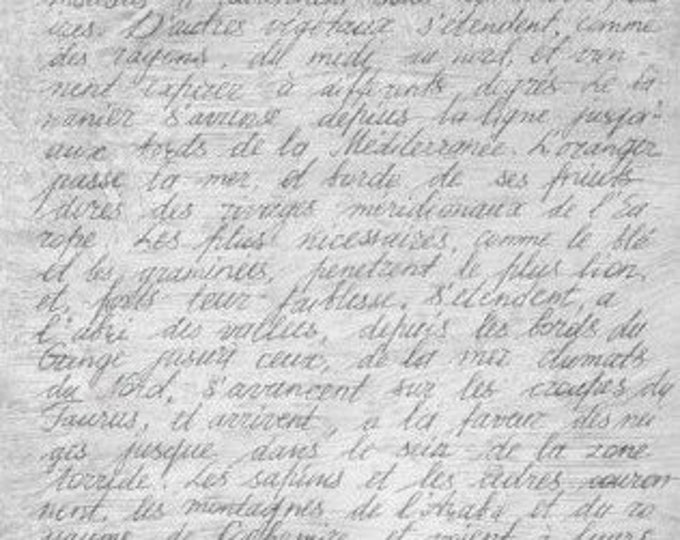 ires. D'autres végétaux s'étendent, comme
des rayons, du midi au nord, et vien-
nent expirer à différents degrés de la
manier s'avance depuis la ligne jusqu'
aux bords de la Méditerranée. L'oranger
passe la mer, et borde de ses fruits
dorés des rivages méridionaux de l'Eu
rope. Les plus nécessaires, comme le blé
et les graminées, penetrent le plus lion,
et forts leur faiblesse, s'étendent, a
l'abri des vallées, depuis les bords du
Gange jusqu'à ceux, de la mer
du Nord, s'avancent sur les croupes du
Taurus, et arrivent, a la faveur des nu
ges jusque dans le sein de la zone
torride. Les sapins et les cèdres couron-
nent, les montagnes de l'Arabi et du ro
de et